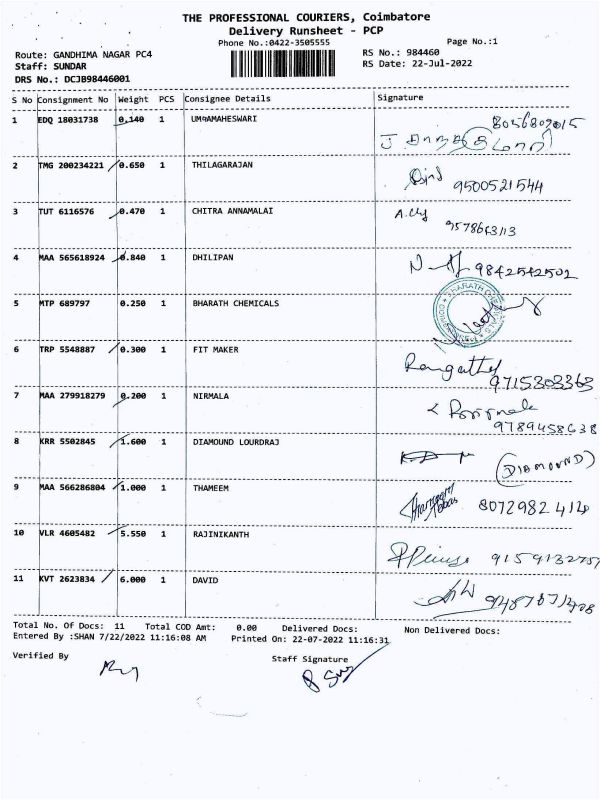 THE PROFESSIONAL COURIERS, Coimbatore
Delivery Runsheet - PCP
Phone No.:0422-3505555
Page No.:1
Route: GANDHIMA NAGAR PC4
RS No.: 984460
Staff: SUNDAR
RS Date: 22-Jul-2022
DRS No.: DCJB98446001
S No Consignment No Weight PCS Consignee Details Signature
1 EDQ 18031738 0.140 1 UMAMAHESWARI
2 TMG 200234221 0.650 1 THILAGARAJAN
9500521544
3 TUT 6116576 0.470 1 CHITRA ANNAMALAI
4 MAA 565618924 0.840 1 DHILIPAN
9842542502
5 MTP 689797 0.250 1 BHARATH CHEMICALS
BHARATH CHEMICALS
6 TRP 5548887 0.300 1 FIT MAKER
9715303363
7 MAA 279918279 0.200 1 NIRMALA
9789458638
8 KRR 5502845 1.600 1 DIAMOUND LOURDRAJ
(DIAMOUND)
9 MAA 566286804 1.000 1 THAMEEM
8072982414
10 VLR 4605482 5.550 1 RAJINIKANTH
9159132757
11 KVT 2623834 6.000 1 DAVID
Total No. Of Docs: 11 Total COD Amt: 0.00 Delivered Docs: Non Delivered Docs:
Entered By :SHAN 7/22/2022 11:16:08 AM Printed On: 22-07-2022 11:16:31
Verified By Staff Signature